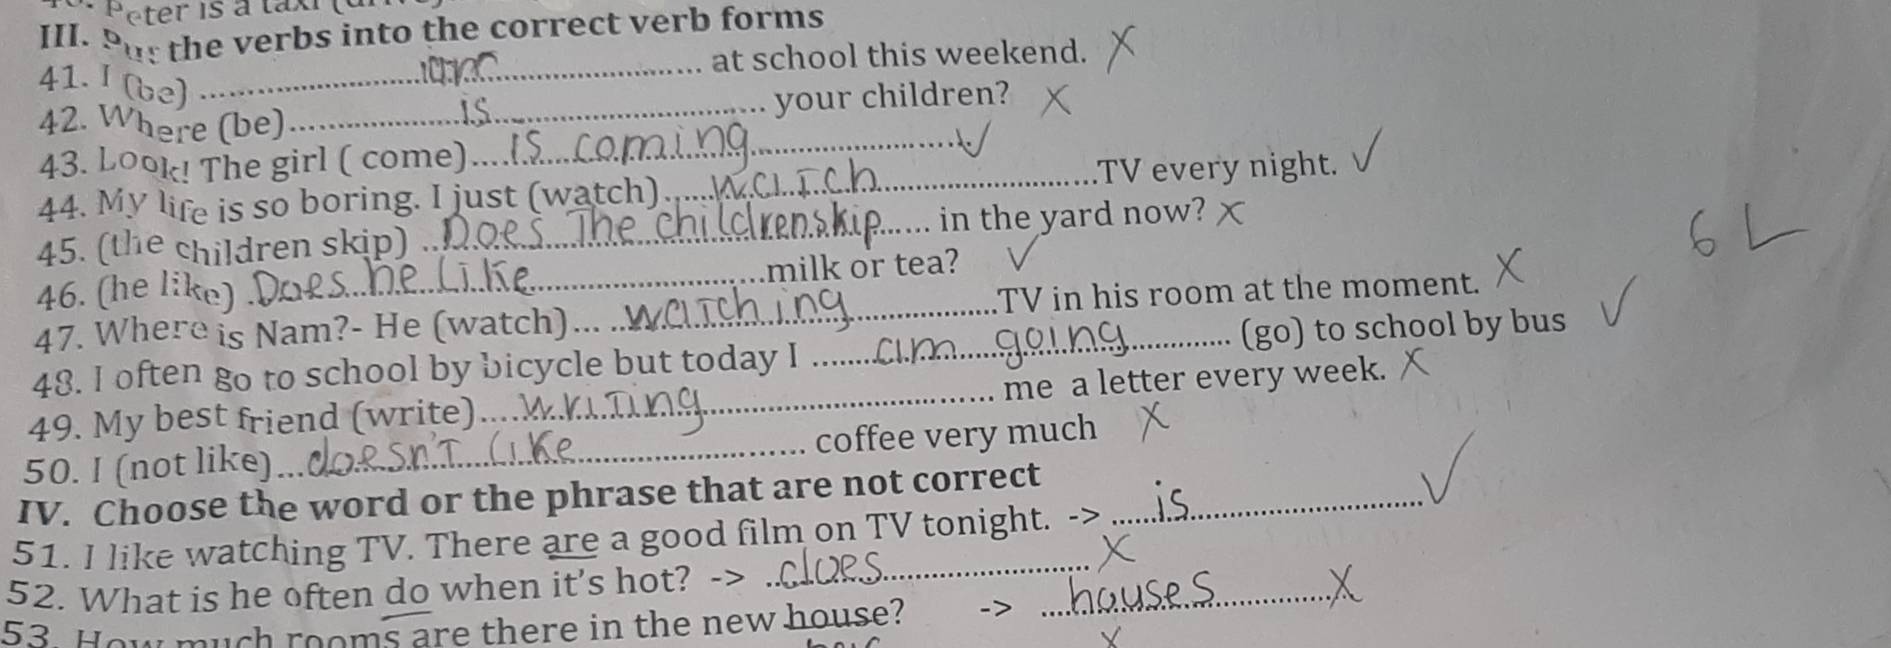 Peter is a taxi
III. Put the verbs into the correct verb forms
41. I (be) ........ am ........ at school this weekend. X
42. Where (be) ........ is ........ your children? X
43. Look! The girl ( come) .... is coming ........ ✓
44. My life is so boring. I just (watch) ...... watch ........ TV every night. ✓
45. (the children skip) .. Does The children skip ...... in the yard now? X
46. (he like) . Does he Like ........ milk or tea? ✓
6 L
47. Where is Nam?- He (watch)... .. watching ........ TV in his room at the moment. X
48. I often go to school by bicycle but today I ...... am going ........ (go) to school by bus ✓
49. My best friend (write).... writing ........ me a letter every week. X
50. I (not like)... doesn't Like ........ coffee very much X
IV. Choose the word or the phrase that are not correct
51. I like watching TV. There are a good film on TV tonight. -> ...... is ........ ✓
52. What is he often do when it's hot? -> .. does ........ X
53. How much rooms are there in the new house? -> .... houses ........ X